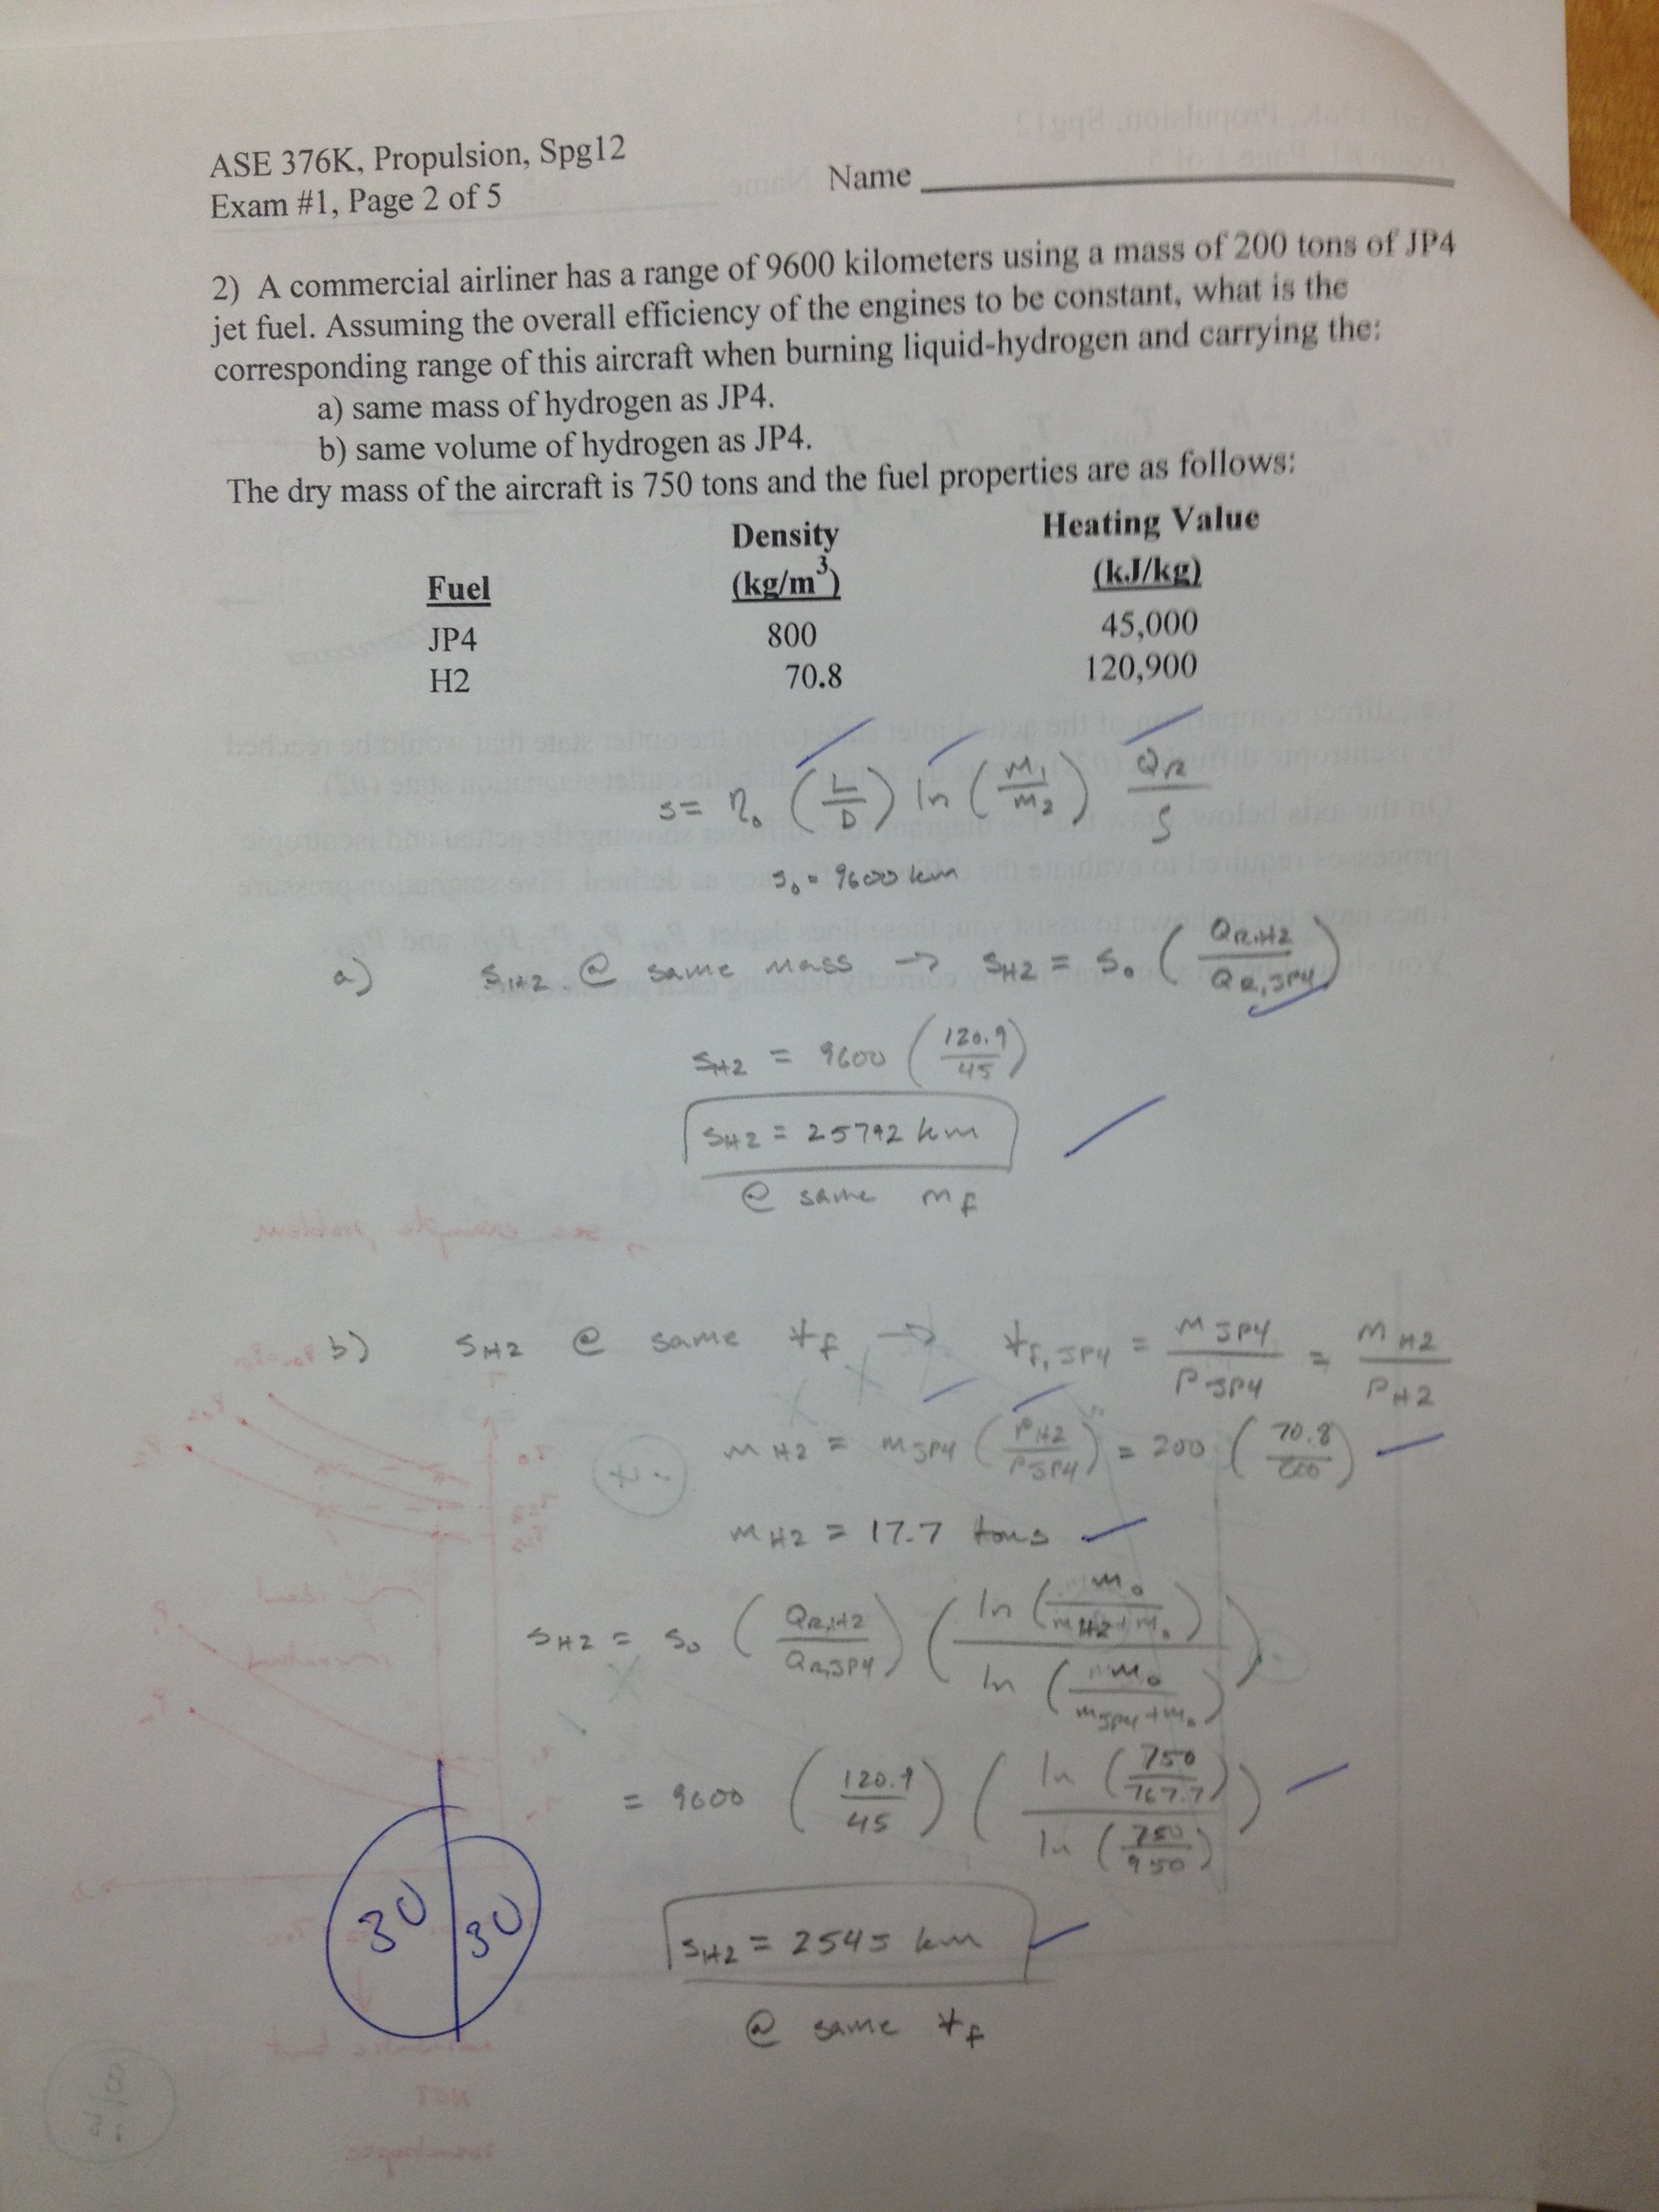 ASE 376K, Propulsion, Spg12
Exam #1, Page 2 of 5
Name
2) A commercial airliner has a range of 9600 kilometers using a mass of 200 tons of JP4
jet fuel. Assuming the overall efficiency of the engines to be constant, what is the
corresponding range of this aircraft when burning liquid-hydrogen and carrying the:
a) same mass of hydrogen as JP4.
b) same volume of hydrogen as JP4.
The dry mass of the aircraft is 750 tons and the fuel properties are as follows:
Density Heating Value
Fuel (kg/m³) (kJ/kg)
JP4 800 45,000
H2 70.8 120,900
s = η₀ (L/D) ln (M₁/M₂) Q_R/g
s₀ = 9600 km
a) S_H2 @ same mass → S_H2 = S₀ (Q_R,H2/Q_R,JP4)
S_H2 = 9600 (120.9/45)
S_H2 = 25792 km
@ same m_f
b) S_H2 @ same V_f → V_f,JP4 = M_JP4/ρ_JP4 = M_H2/ρ_H2
m_H2 = m_JP4 (ρ_H2/ρ_JP4) = 200 (70.8/800)
m_H2 = 17.7 tons
S_H2 = S₀ (Q_R,H2/Q_R,JP4) (ln (m₀/(m_H2+m₀))/ln (m₀/(m_JP4+m₀)))
= 9600 (120.9/45) (ln (750/767.7)/ln (750/950))
S_H2 = 2545 km
@ same V_f
30 30